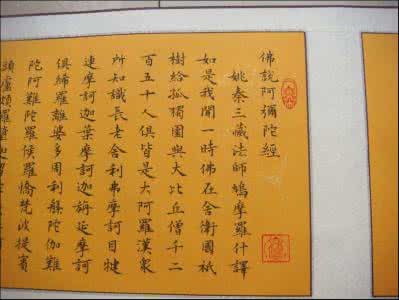 佛說阿彌陀經
姚秦三藏法師鳩摩羅什譯
如是我聞一時佛在舍衛國祇
樹給孤獨園與大比丘僧千二
百五十人俱皆是大阿羅漢衆
所知識長老舍利弗摩訶目犍
連摩訶迦葉摩訶迦旃延摩訶
俱絺羅離婆多周利槃陀伽難
陀阿難陀羅侯羅憍梵波提賓
頭盧頗羅墮